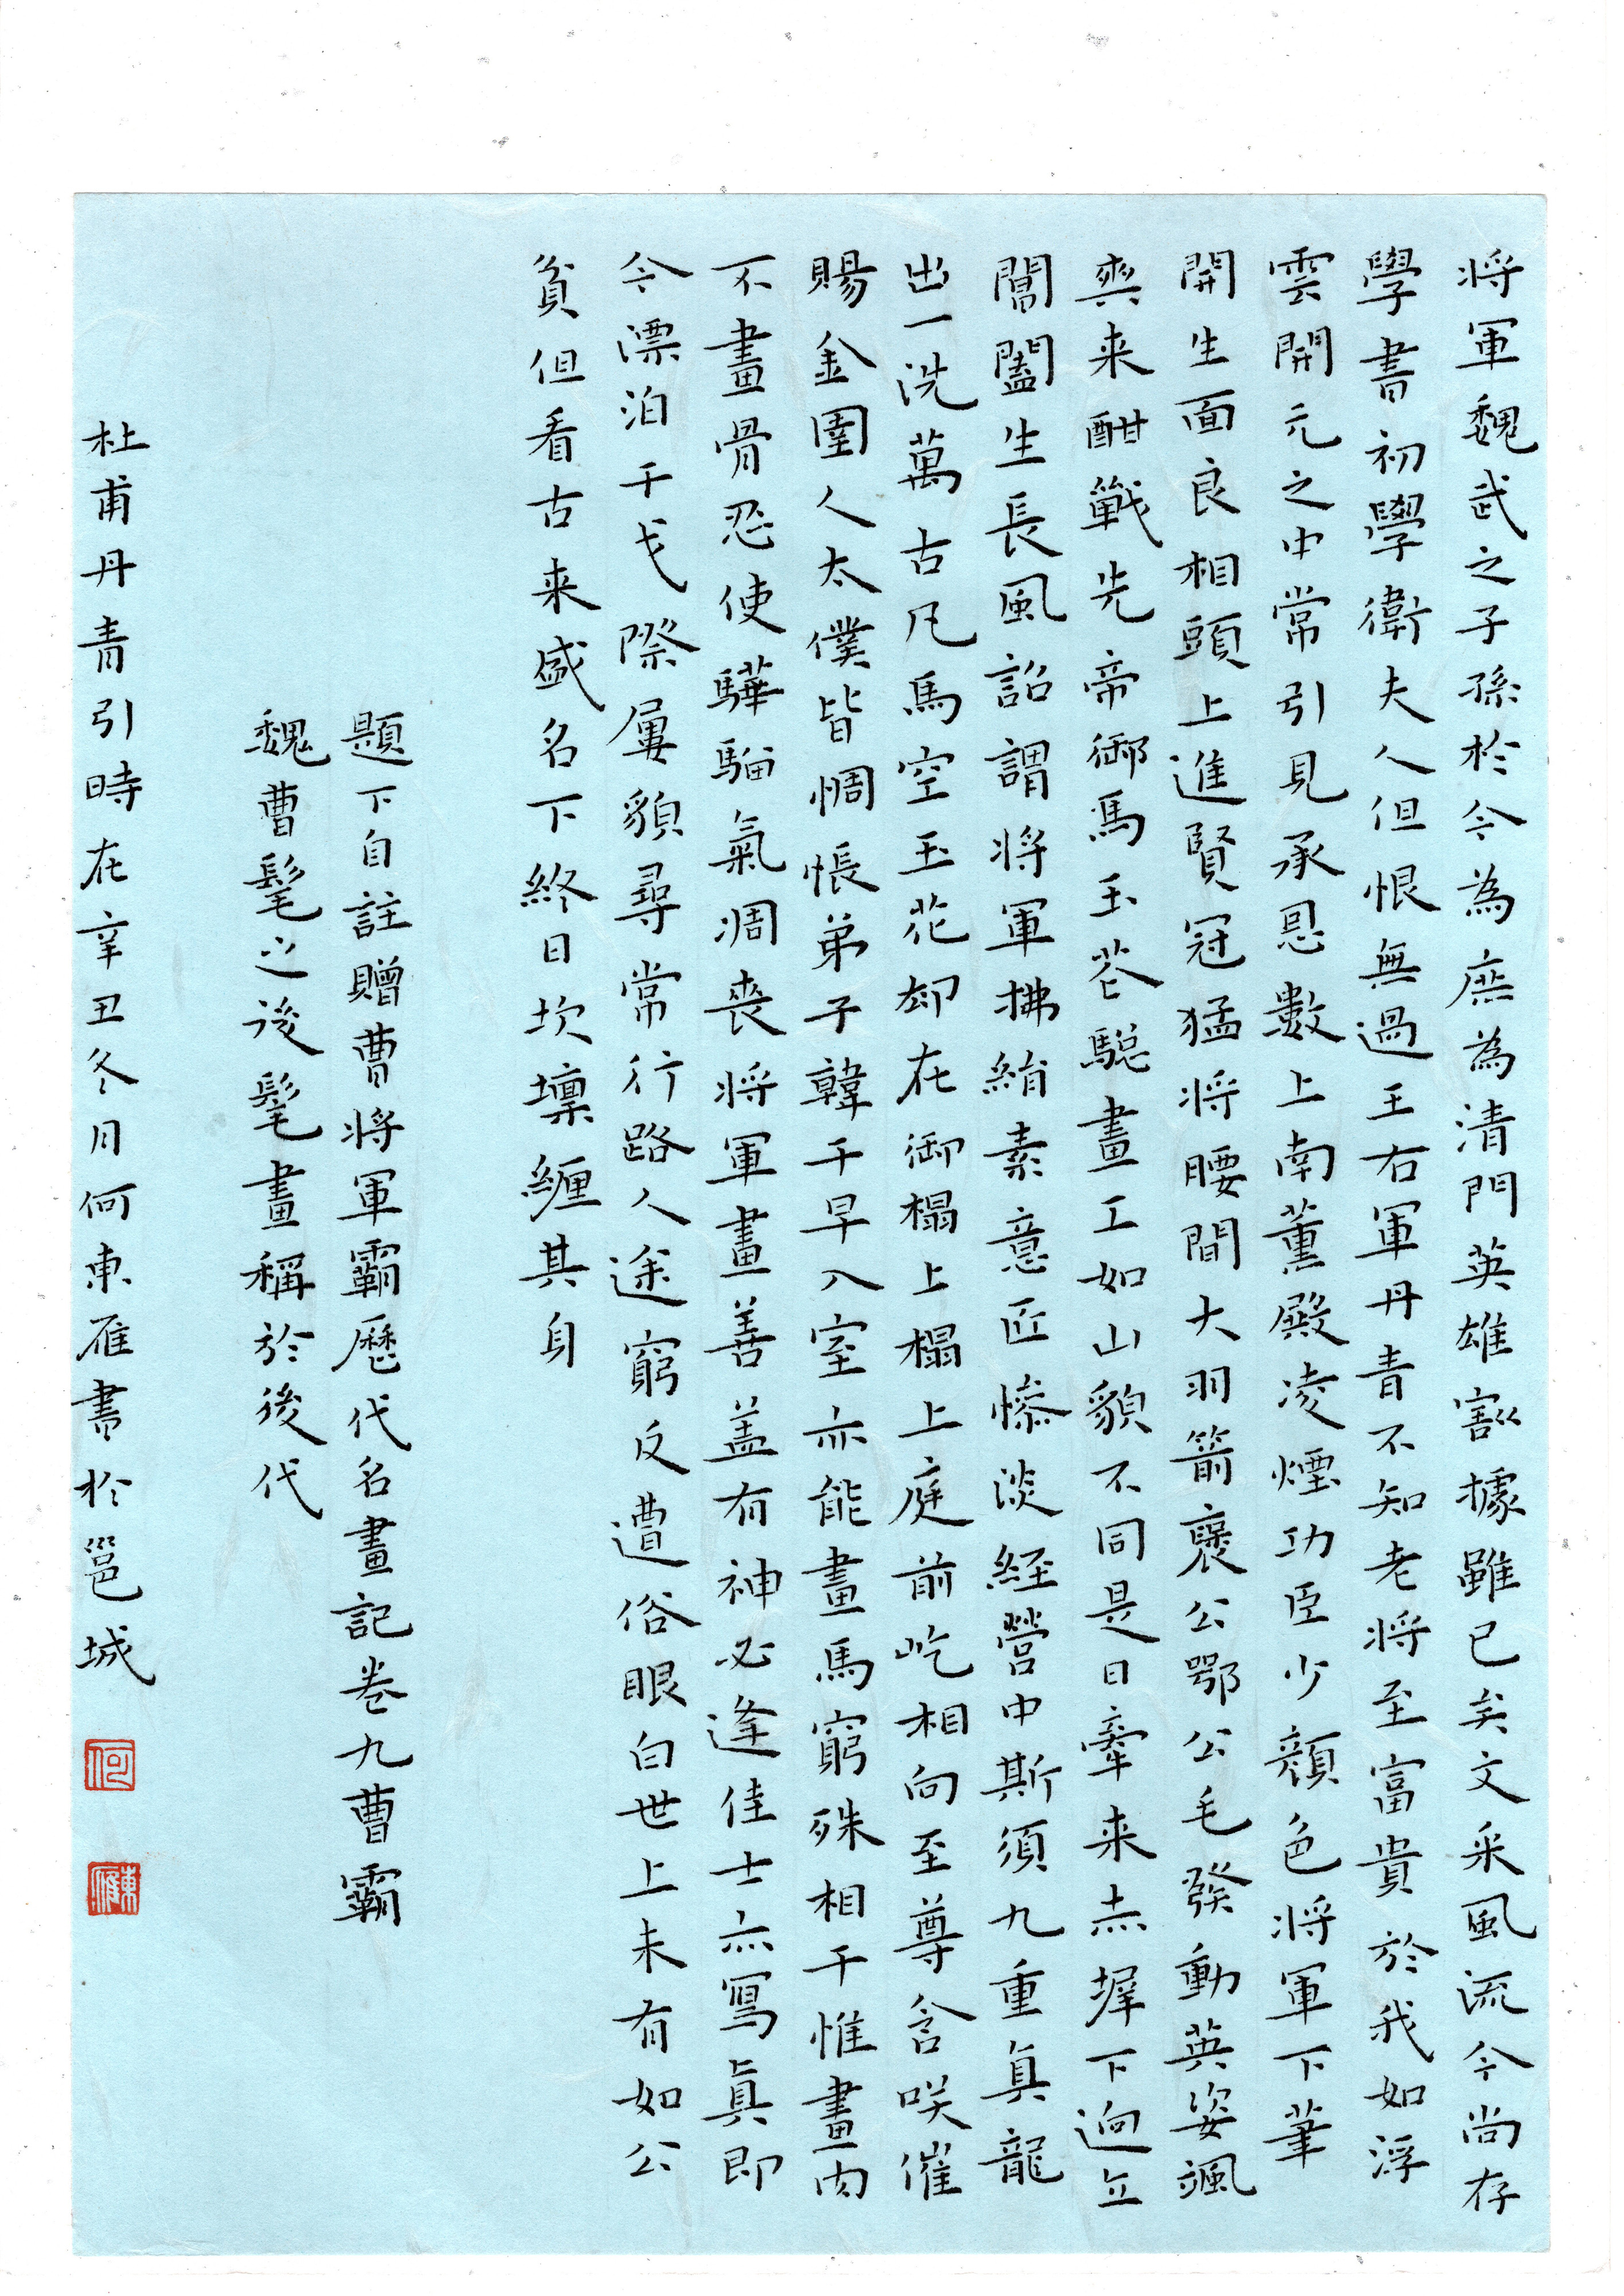 将軍魏武之子孫於今為庶為清門英雄割據雖已矣文采風流今尚存
學書初學衛夫人但恨無過王右軍丹青不知老將至富貴於我如浮
雲開元之中常引見承恩數上南薰殿凌煙功臣少顏色将軍下筆
開生面良相頭上進賢冠猛將腰間大羽箭褒公鄂公毛發動英姿颯
爽来酣戰先帝御馬玉花驄畫工如山貌不同是日牽来赤墀下迥立
閶闔生長風詔謂将軍拂絹素意匠慘淡経營中斯須九重真龍
出一洗萬古凡馬空玉花却在御榻上榻上庭前屹相向至尊含咲催
賜金圉人太僕皆惆悵弟子韓干早入室亦能畫馬窮殊相干惟畫肉
不畫骨忍使驊騮氣凋喪将軍畫善盖有神必逢佳士亦寫真即
今漂泊干戈際屢貌尋常行路人途窮反遭俗眼白世上未有如公
貧但看古来盛名下終日坎壈纏其身
題下自註贈曹将軍霸歷代名畫記卷九曹霸
魏曹髦之後髦畫稱於後代
杜甫丹青引時在辛丑冬月何東雁書於邕城
何
東雁